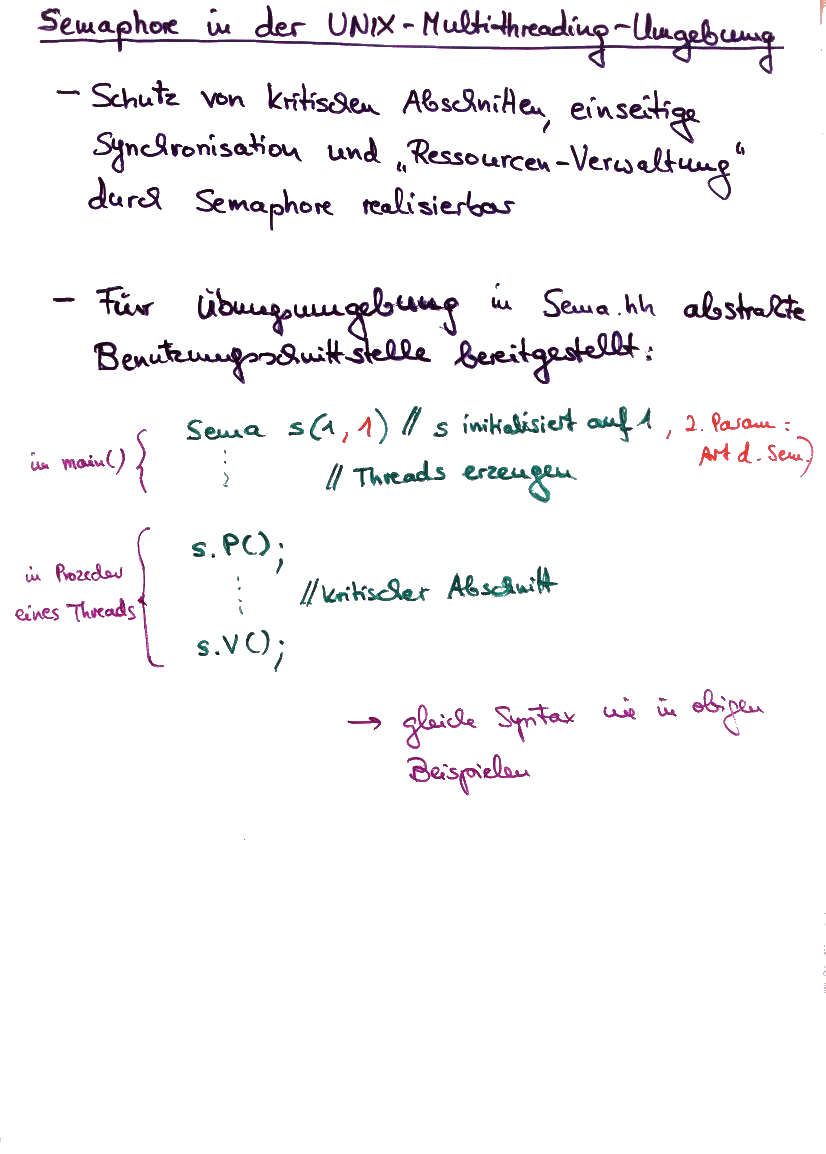 Semaphore in der UNIX-Multithreading-Umgebung
- Schutz von kritischen Abschnitten, einseitige
Synchronisation und „Ressourcen-Verwaltung“
durch Semaphore realisierbar
- Für Übungsumgebung in Sema.hh abstrakte
Benutzungsschnittstelle bereitgestellt:
in main() { Sema s(1,1) // s initialisiert auf 1, 2. Param:
Art d. Sem.)
// Threads erzeugen
s.P();
in Prozedur
eines Threads { // kritischer Abschnitt
s.V();
→ gleiche Syntax wie in obigen
Beispielen